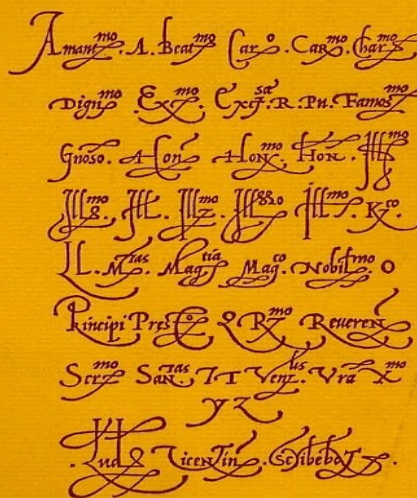 Amant^mo. A. Beat^mo Car^o. Car^mo. Char^mo
Dign^mo. Ex^mo. Exc^sa. R. Pu. Famos^mo
Gnoso. A Hon Hon^mo. Hon. Ill^mo
Ill^mo. Ill. Ill^mo Ill^o Ill^mo. K^co.
LL. M^tas. Mag^tia Mag^co. Nobil^mo O
Principi Pres Q R^mo Reveren
Ser^mo San^tas. T T Ven^lis. Vra X^mo
y z
Lud Vicentin. Scribebat